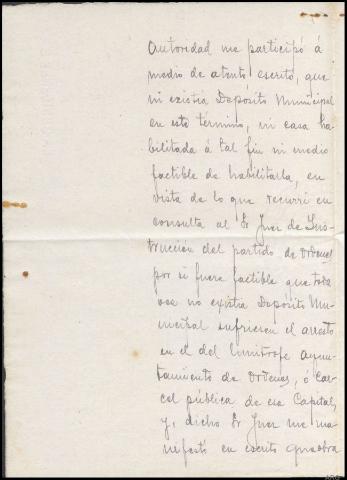 Autoridad me participó á
medio de atento escrito, que
ni existia Depósito Municipal
en este término, ni casa ha-
bilitada á tal fin ni medio
factible de habilitarla, en
vista de lo que recurri en
consulta al Sr Juez de Ins-
trucción del partido de Ordenes
por si fuera factible que toda
vez no existia Depósito Mu-
nicipal sufriesen el arresto
en el del limitrofe ayun-
tamiento de Ordenes, ó Car-
cel pública de esa Capital,
y, dicho Sr Juez me ma-
nifestó en escrito que obra